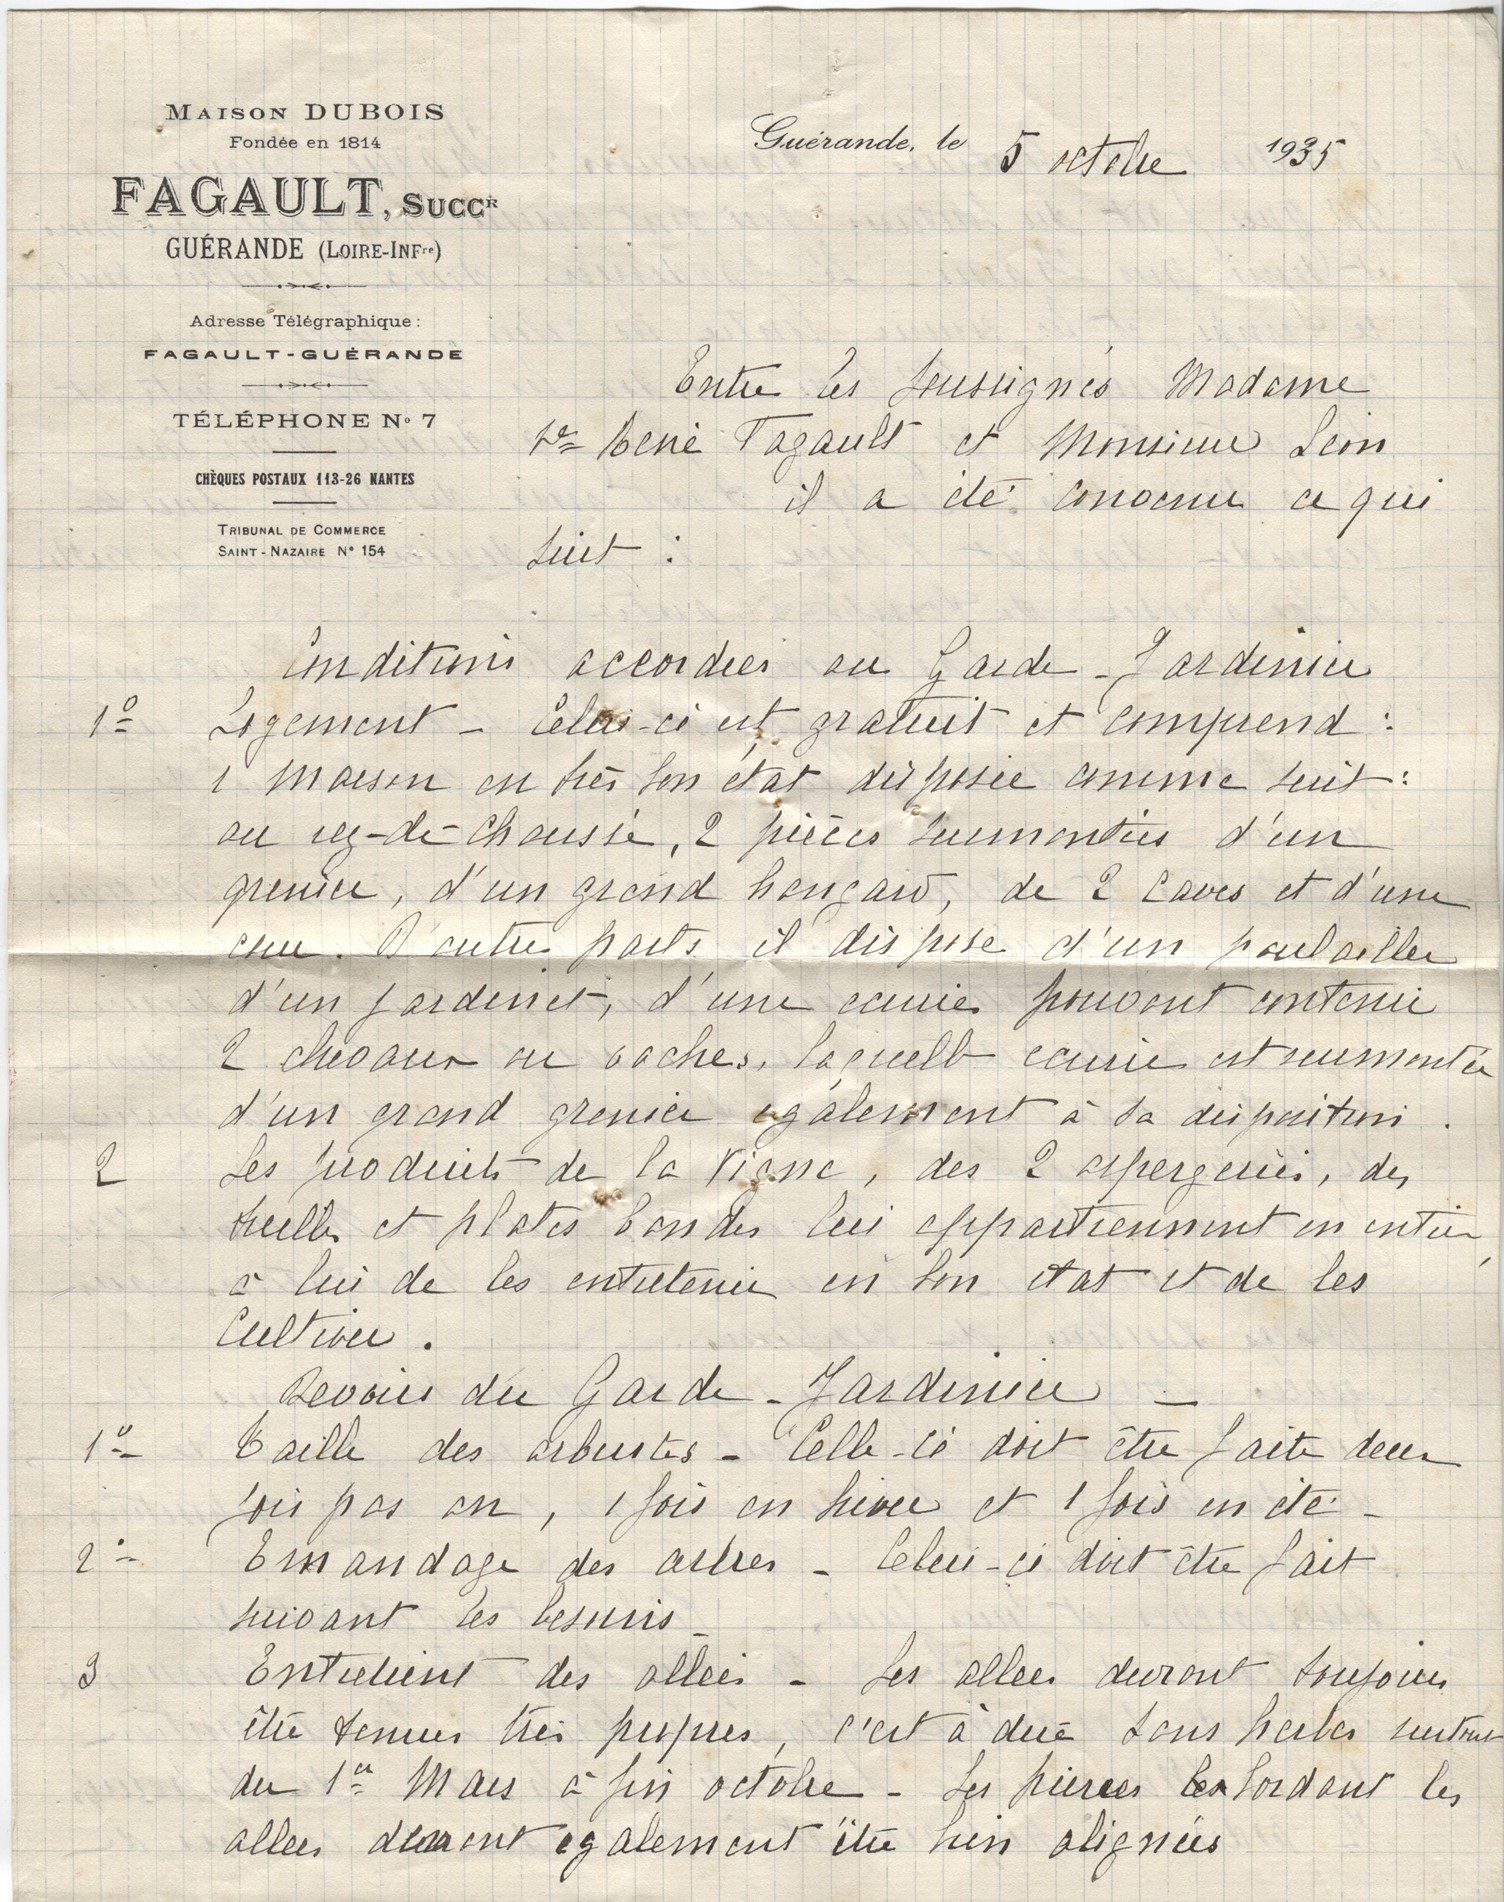 MAISON DUBOIS
Fondée en 1814
FAGAULT, SUCCR
GUÉRANDE (LOIRE-INFre)
Adresse Télégraphique :
FAGAULT-GUÉRANDE
TÉLÉPHONE No 7
CHÈQUES POSTAUX 113-26 NANTES
TRIBUNAL DE COMMERCE
SAINT-NAZAIRE N° 154
Guérande, le 5 octobre 1935
Entre les soussignés Madame
Vve René Fagault et Monsieur Léon
il a été convenu ce qui
suit :
Conditions accordées au Garde-Jardinier
1° Logement - Celui-ci est gratuit et comprend :
1 maison en très bon état disposée comme suit :
au rez-de-chaussée, 2 pièces surmontées d'un
grenier, d'un grand hangard, de 2 caves et d'une
cour. D'autre parts il dispose d'un poulailler
d'un jardinet, d'une écurie pouvant contenir
2 chevaux ou vaches, laquelle écurie est surmontée
d'un grand grenier également à sa disposition.
2 Les produits de la Vigne, des 2 aspergeries, des
treilles et plates bandes lui appartiennent en entier,
à lui de les entretenir en bon état et de les
cultiver.
Devoirs du Garde-Jardinier -
1° Taille des arbustes - Celle-ci doit être faite deux
fois par an, 1 fois en hiver et 1 fois en été -
2° Emondage des arbres - Celui-ci doit être fait
suivant les besoins -
3 Entretient des allées - Les allées devront toujours
être tenues très propres, c'est à dire sans herbes surtout
du 1er Mars à fin octobre - Les pierres bordant les
allées devront également être bien alignées